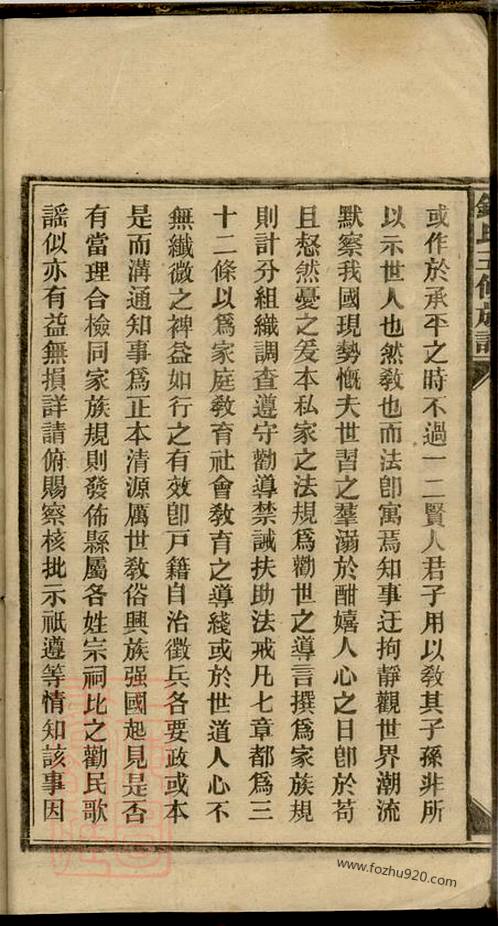 或作於承平之時不過一二賢人君子用以敎其子孫非所
以示世人也然敎也而法卽寓焉知事迂拘靜觀世界潮流
默察我國現勢慨夫世習之羣溺於酣嬉人心之日卽於苟
且惄然憂之爰本私家之法規爲勸世之導言撰爲家族規
則計分組織調查遵守勸導禁誡扶助法戒凡七章都爲三
十二條以爲家庭敎育社會敎育之導綫或於世道人心不
無纖微之裨益如行之有效卽戶籍自治徵兵各要政或本
是而溝通知事爲正本清源厲世敎俗興族强國起見是否
有當理合檢同家族規則發佈縣屬各姓宗祠比之勸民歌
謠似亦有益無損詳請俯賜察核批示祇遵等情知該事因
www.fozhu920.com